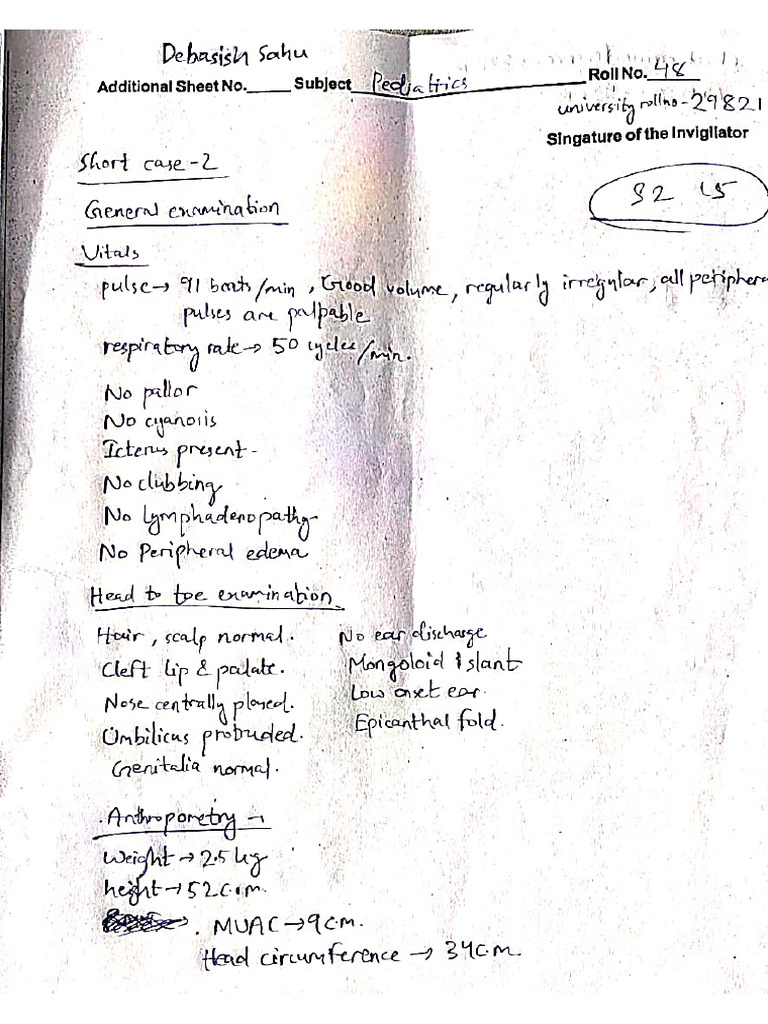 Debasish Sahu
Additional Sheet No.______ Subject Pediatrics Roll No. 48
university roll no - 29821
Singature of the Invigilator
Short case - 2
S2 15
General examination
Vitals
pulse → 91 beats/min, Good volume, regularly irregular, all periphera
pulses are palpable
respiratory rate → 50 cycles/min.
No pallor
No cyanosis
Icterus present -
No clubbing
No lymphadenopathy
No Peripheral edema
Head to toe examination
Hair, scalp normal. No ear discharge
Cleft lip & palate. Mongoloid slant
Nose centrally placed. Low onset ear.
Umbilicus protruded. Epicanthal fold.
Genitalia normal.
Anthropometry →
Weight → 2.5 kg
height → 52 c.m.
. MUAC → 9 c.m.
Head circumference → 34 c.m.